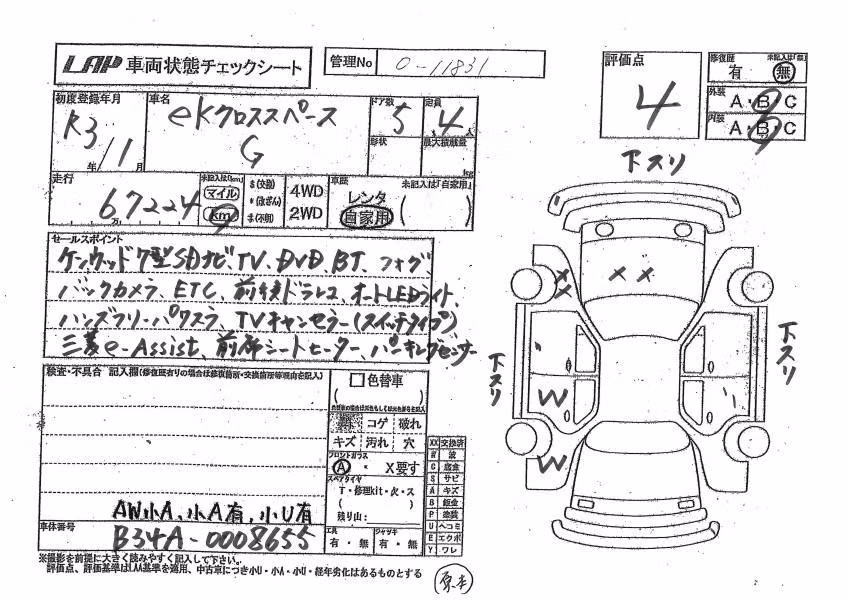 LAP 車両状態チェックシート
管理No 0-11831
評価点
4
修復歴 未記入は「無」
有 無
外装 A・B・C
内装 A・B・C
初度登録年月
R3年/1月
車名
eKクロススペース
G
ドア数 5
定員 4人
形状
最大積載量
kg
走行
67224
万
未記入は「km」
マイル
km
$(交換)
*(改ざん)
#(不明)
4WD
2WD
車歴 未記入は「自家用」
レンタ
自家用
( )
セールスポイント
ケンウッド7型SDナビ、TV、DVD、BT、フォグ、
バックカメラ、ETC、前後ドラレコ、オートLEDライト、
ハンズフリーパワスラ、TVキャンセラー(スイッチタイプ)
三菱e-Assist、前席シートヒーター、パーキングセンサー
検査・不具合 記入欄(修復歴有りの場合は修復箇所・交換箇所等理由を記入)
AW小A、小A有、小U有
車体番号
B34A-0008655
色替車
( )
コゲ 破れ
キズ 汚れ 穴
フロントガラス
A ・ X要す
スペアタイヤ
T・修理kit・欠・ス
( )
残り山:
工具
有・無
ジャッキ
有・無
XX 交換済
W 波
C 腐食
S サビ
A キズ
B 鈑金
P 塗装
U ヘコミ
E エクボ
Y ワレ
下スリ
X
X
X X
W
W
下スリ
下スリ
※撮影を前提に大きく読みやすく記入して下さい。
評価点、評価基準はLAA基準を適用、中古車につき小U・小A・小U・経年劣化はあるものとする
原本